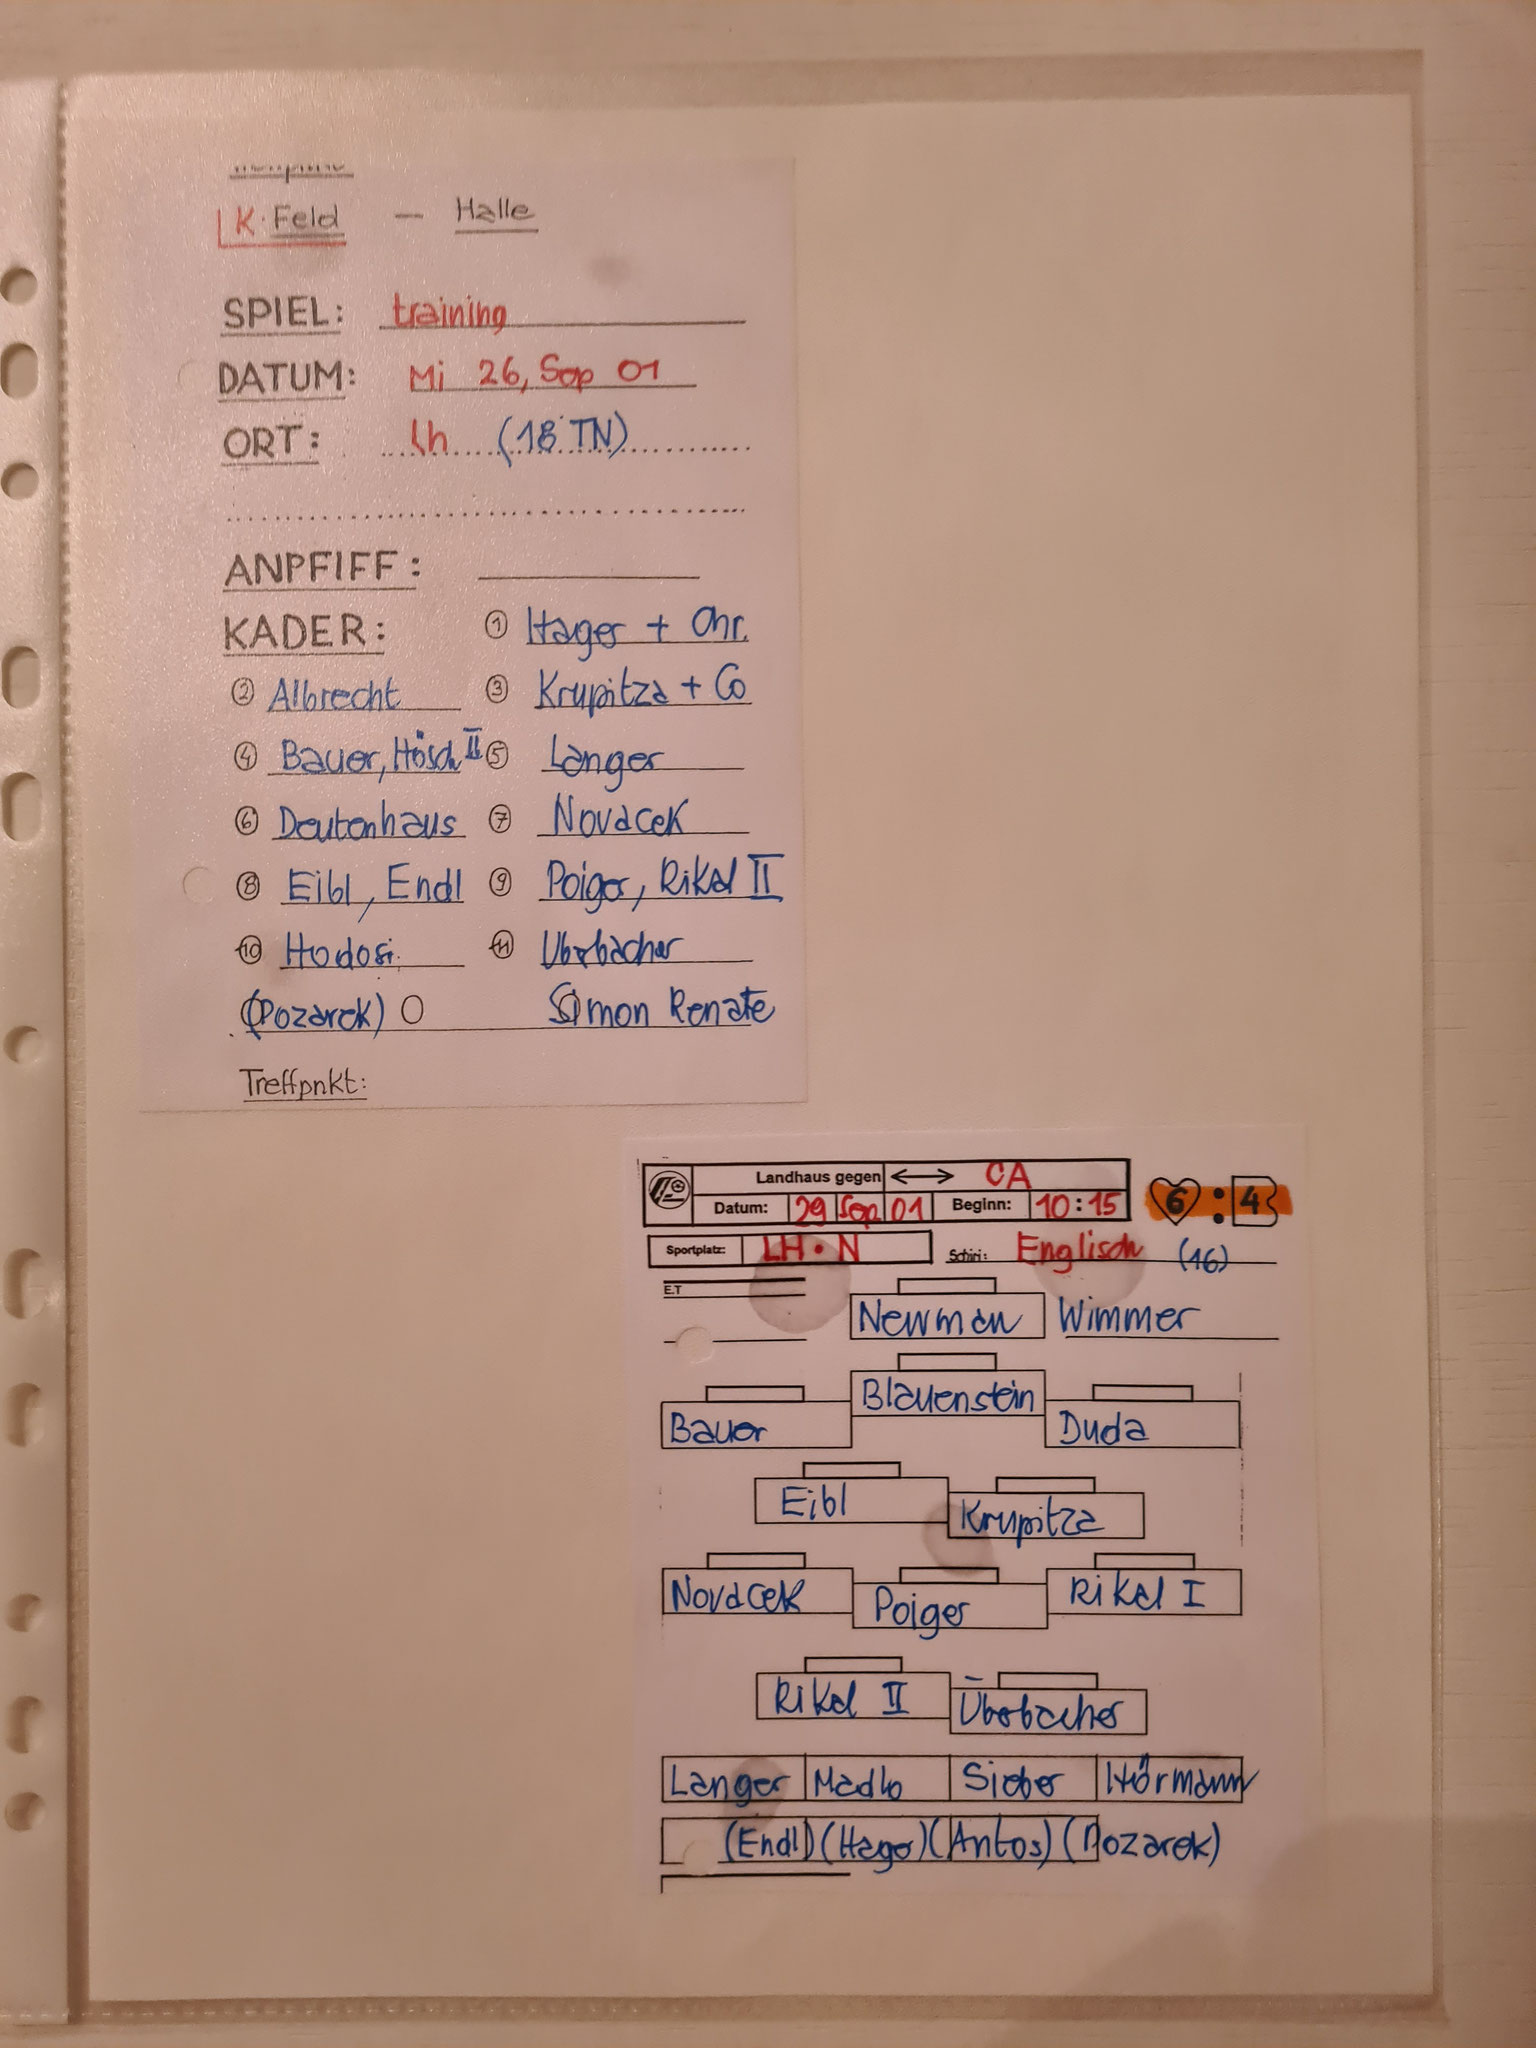 K. Feld — Halle
SPIEL: training
DATUM: Mi 26, Sep 01
ORT: lh (18 TN)
ANPFIFF:
KADER: ① Hager + Chr.
② Albrecht ③ Krupitza + Co
④ Bauer, Hösch II ⑤ Langer
⑥ Deutenhaus ⑦ Novacek
⑧ Eibl, Endl ⑨ Poiger, Rikal II
⑩ Hodosi ⑪ Überbacher
(Pozarek) Simon Renate
Treffpnkt:
Landhaus gegen ↔ CA
Datum: 29 Sep 01 Beginn: 10:15 6 : 4
Sportplatz: LH • N Schiri: Englisch (16)
E.T
Newman Wimmer
Blauenstein
Bauer Duda
Eibl Krupitza
Novacek Poiger Rikal I
Rikal II Überbacher
Langer Madlo Sieber Hörmann
(Endl) (Hager) (Antos) (Pozarek)